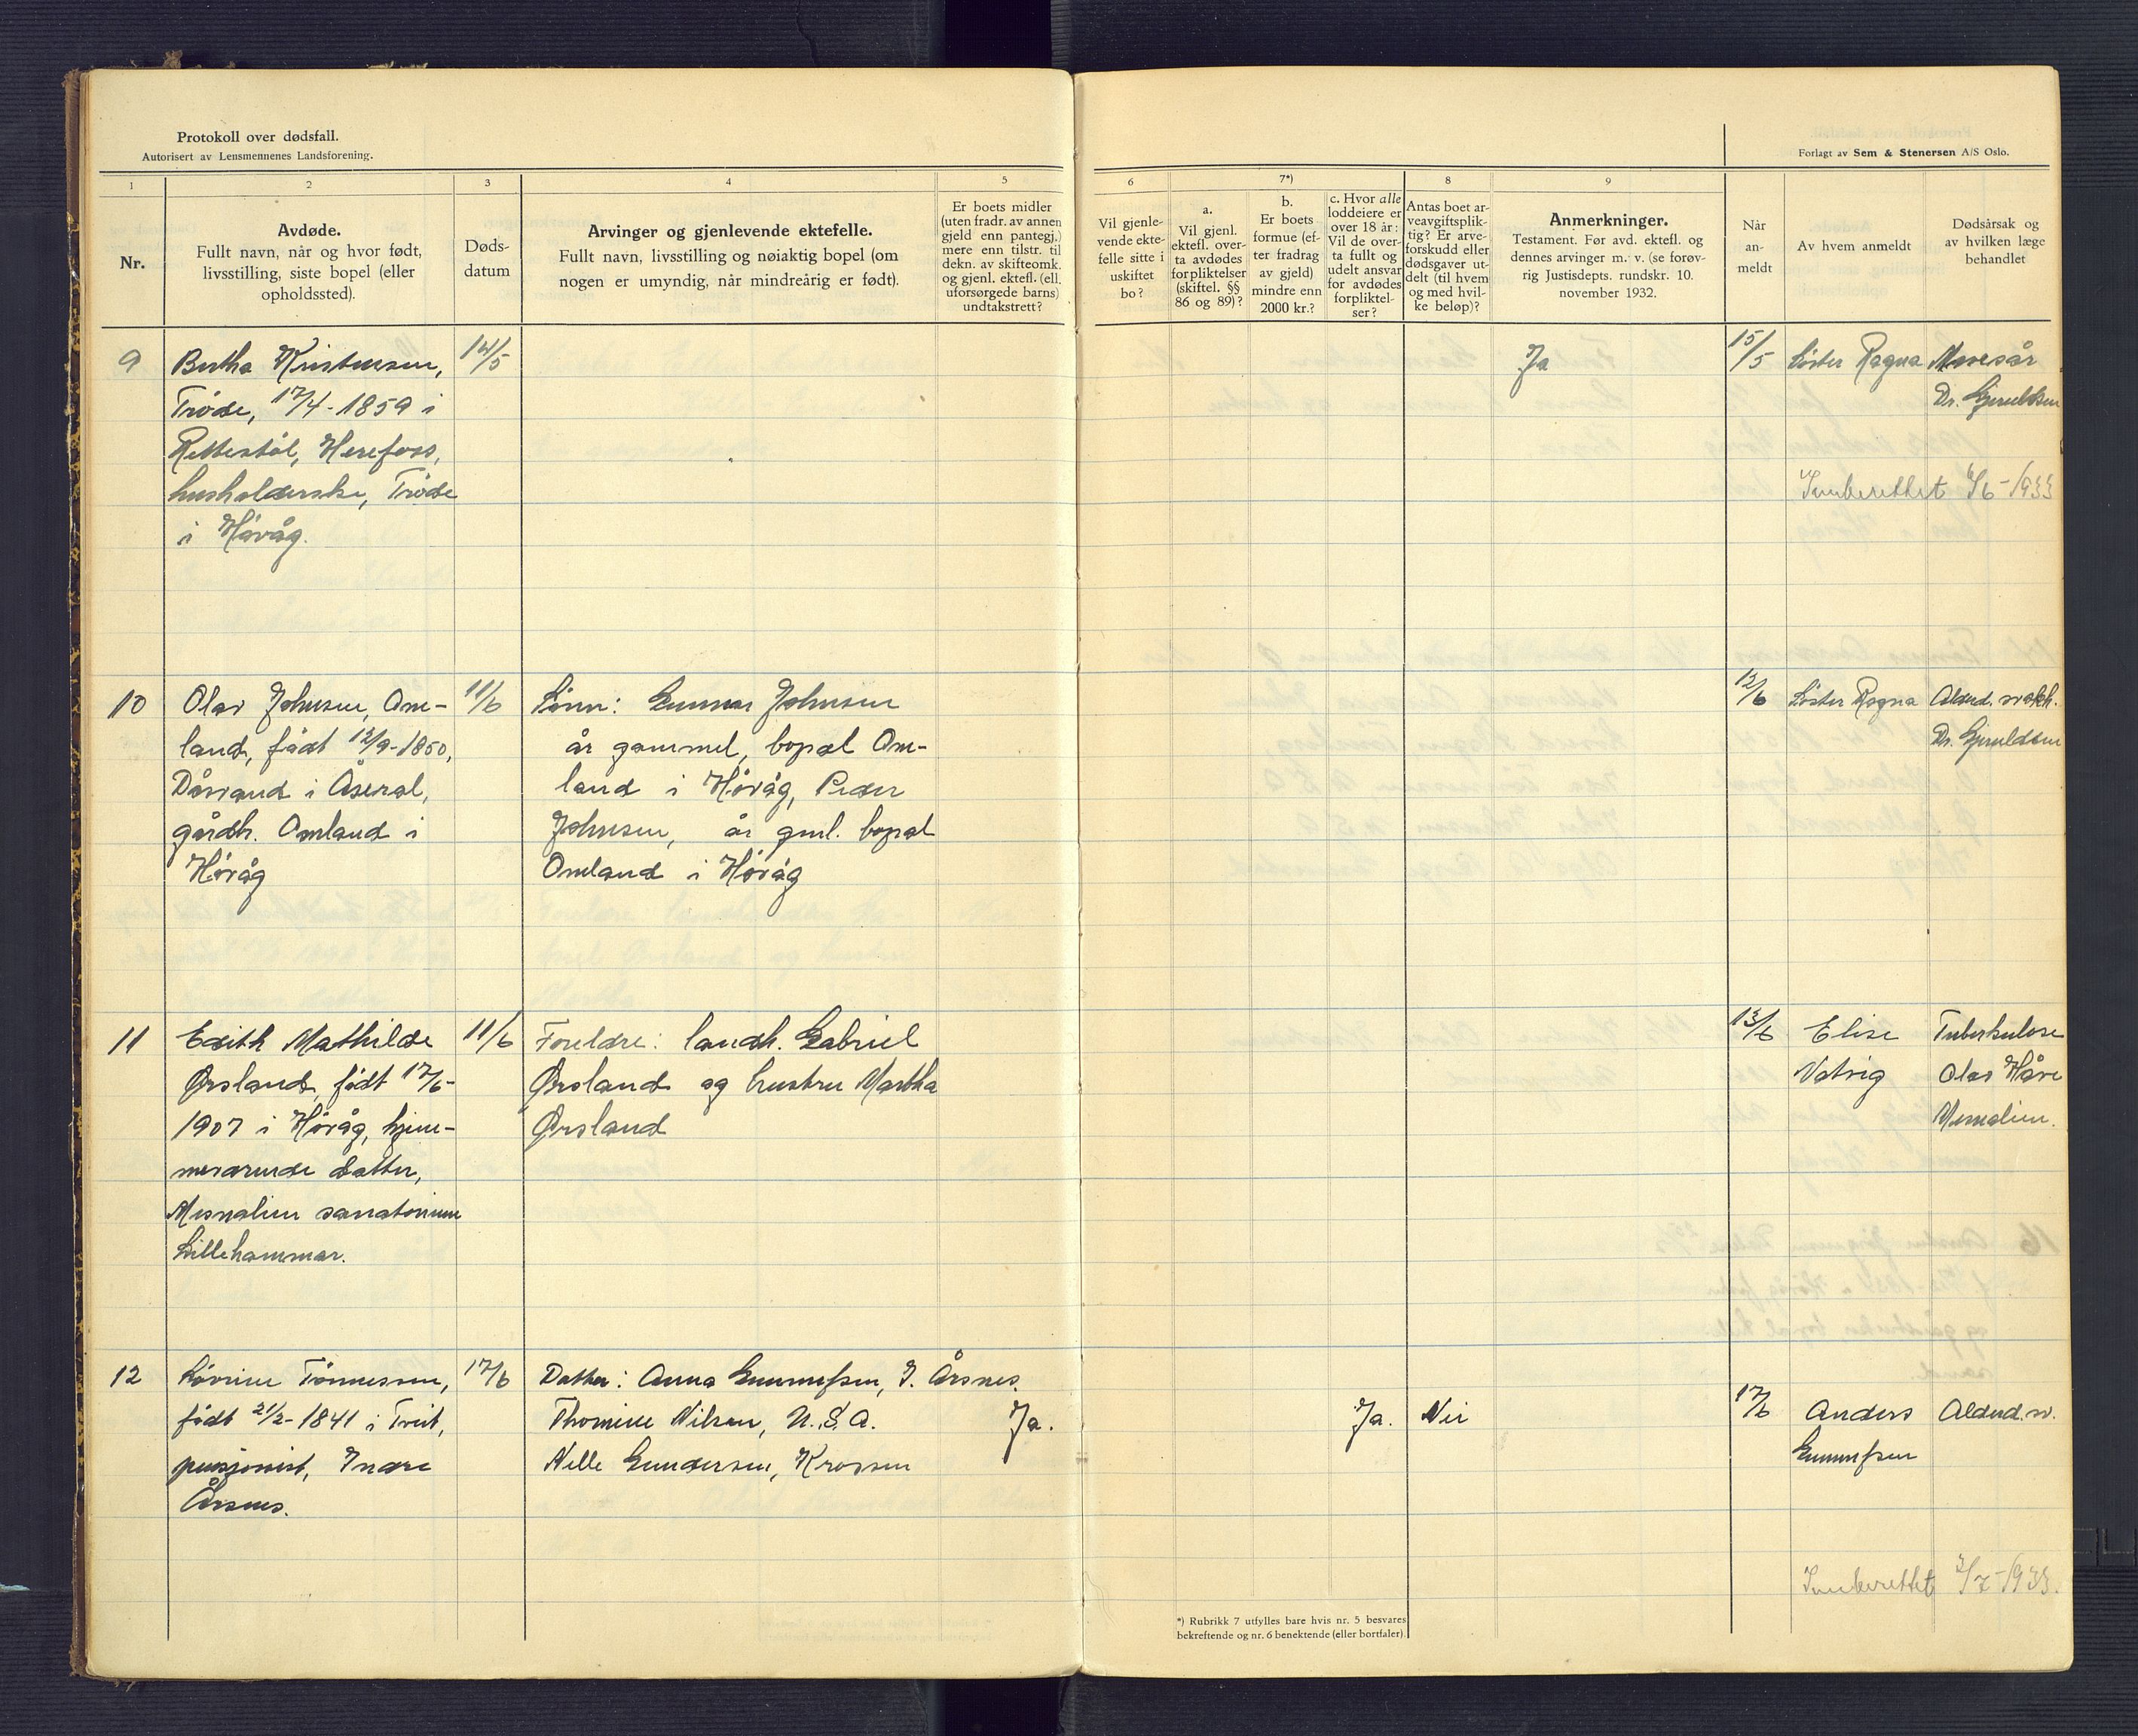 Protokoll over dødsfall.
Autorisert av Lensmennenes Landsforening.
Forlagt av Sem & Stenersen A/S Oslo.
1
2
3
4
5
6
7*)
8
9
Nr.
Avdøde.
Fullt navn, når og hvor født,
livsstilling, siste bopel (eller
opholdssted).
Døds-
datum
Arvinger og gjenlevende ektefelle.
Fullt navn, livsstilling og nøiaktig bopel (om
nogen er umyndig, når mindreårig er født).
Er boets midler
(uten fradr. av annen
gjeld enn pantegj.)
mere enn tilstr. til
dekn. av skifteomk.
og gjenl. ektefl. (ell.
uforsørgede barns)
undtakstrett?
Vil gjenle-
vende ekte-
felle sitte i
uskiftet
bo?
a.
Vil gjenl.
ektefl. over-
ta avdødes
forpliktelser
(skiftel. §§
86 og 89)?
b.
Er boets
formue (ef-
ter fradrag
av gjeld)
mindre enn
2000 kr.?
c. Hvor alle
loddeiere er
over 18 år:
Vil de over-
ta fullt og
udelt ansvar
for avdødes
forpliktel-
ser?
Antas boet ar-
veavgiftsplik-
tig? Er arve-
forskudd eller
dødsgaver ut-
delt (til hvem
og med hvil-
ke beløp)?
Anmerkninger.
Testament. Før avd. ektefl. og
dennes arvinger m. v. (se forøv-
rig Justisdepts. rundskr. 10.
november 1932.
Når
an-
meldt
Av hvem anmeldt
Dødsårsak og
av hvilken læge
behandlet
9
Bertha Kristensen,
Trøde, 17/4-1859 i
Rettestøl, Herefoss,
husholderske, Trøde
i Høvåg.
14/5
Ja
15/5
Søster Ragna
Mavesår
Dr. Gjeruldsen
Innberettet 6/6-1933
10
Olav Johnsen, Om-
land, født 12/9-1850,
i Åseral,
gårdb. Omland i
Høvåg
11/6
Sønn: Gunnar Johnsen
år gammel, bopæl Om-
land i Høvåg, Peder
Johnsen, år gml. bopæl
Omland i Høvåg
12/6
Søster Ragna
Alderd. svakh.
Dr. Gjeruldsen
11
Edith Mathilde
Ørsland, født 17/6-
1907 i Høvåg, hjem-
meværende datter,
Mesnalien sanatorium
Lillehammer.
11/6
Foreldre: landh. Gabriel
Ørsland og hustru Martha
Ørsland
13/6
Elise
Vatvig
Tuberkulose
Olav Håve
Mesnalien.
12
Løvise Tønnesen,
født 21/2-1841 i Tveit,
pensjonist, Indre
Årsnes.
17/6
Datter: Anna Gunnufsen, I. Årsnes.
Thomine Nilsen, U.S.A.
Nelle Gundersen, Krossen
Ja.
Ja.
Nei
17/6
Anders
Gunnufsen
Alderd. sv.
Innberettet 3/7-1933.
*) Rubrikk 7 utfylles bare hvis nr. 5 besvares
bekreftende og nr. 6 benektende (eller bortfaller).